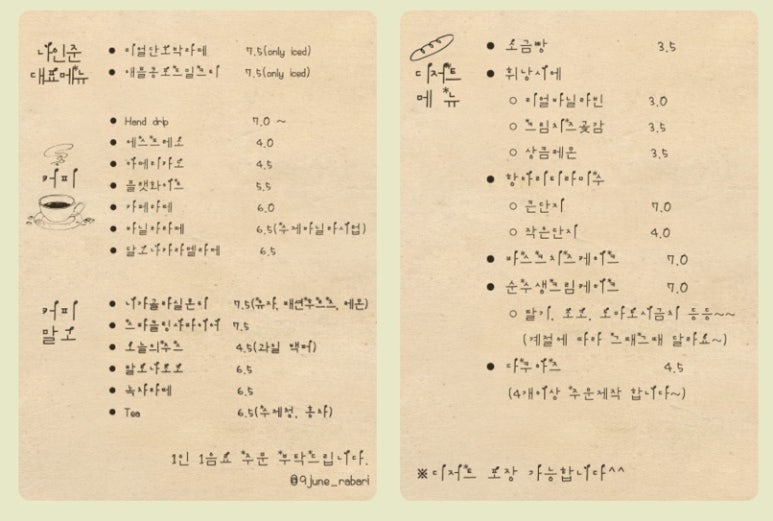 나인준
대표메뉴
리얼단호박라떼 7.5(only iced)
애플콩포트밀크티 7.5(only iced)
커피
Hand drip 7.0 ~
에스프레소 4.0
아메리카노 4.5
플랫화이트 5.5
카페라떼 6.0
바닐라라떼 6.5(수제바닐라시럽)
달고나카라멜라떼 6.5
커피
말고
7.5(유자, 패션후르츠, 레몬)
7.5
오늘의쥬스 4.5
달고나초코 6.5
녹차라떼 6.5
Tea 6.5(수제청, 홍차)
1인 1음료 주문 부탁드립니다.
@9june_rabari
디저트
메뉴
소금빵 3.5
휘낭시에
리얼바닐라빈 3.0
크림치즈곶감 3.5
상큼레몬 3.5
항아리티라미수
큰단지 7.0
작은단지 4.0
바스크치즈케이크 7.0
순수생크림케이크 7.0
딸기, 등등~~
(계절에 따라 그때그때 달라요~)
다쿠아즈 4.5
(4개이상 주문제작 합니다~)
※디저트 포장 가능합니다^^